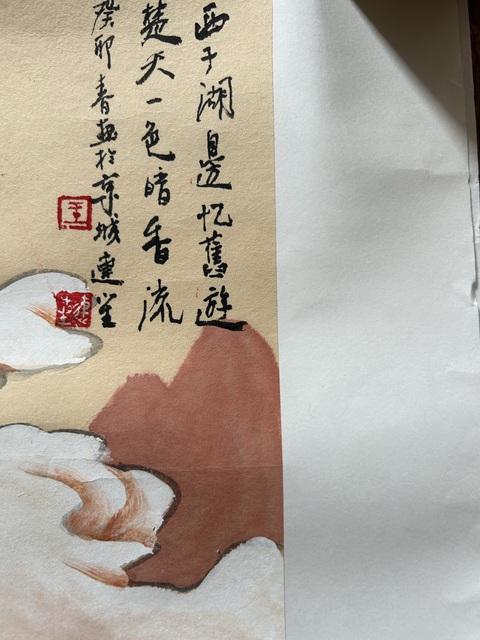 西子湖邊忆舊遊
楚天一色暗香流
癸卯春画於京城連堂
王